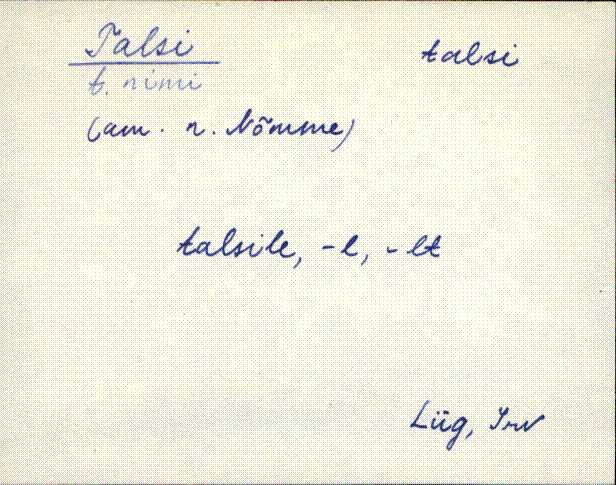 Talsi talsi
t. nimi
(am. n. Nõmme)
talsile, -l, -lt
Lüg, Irv